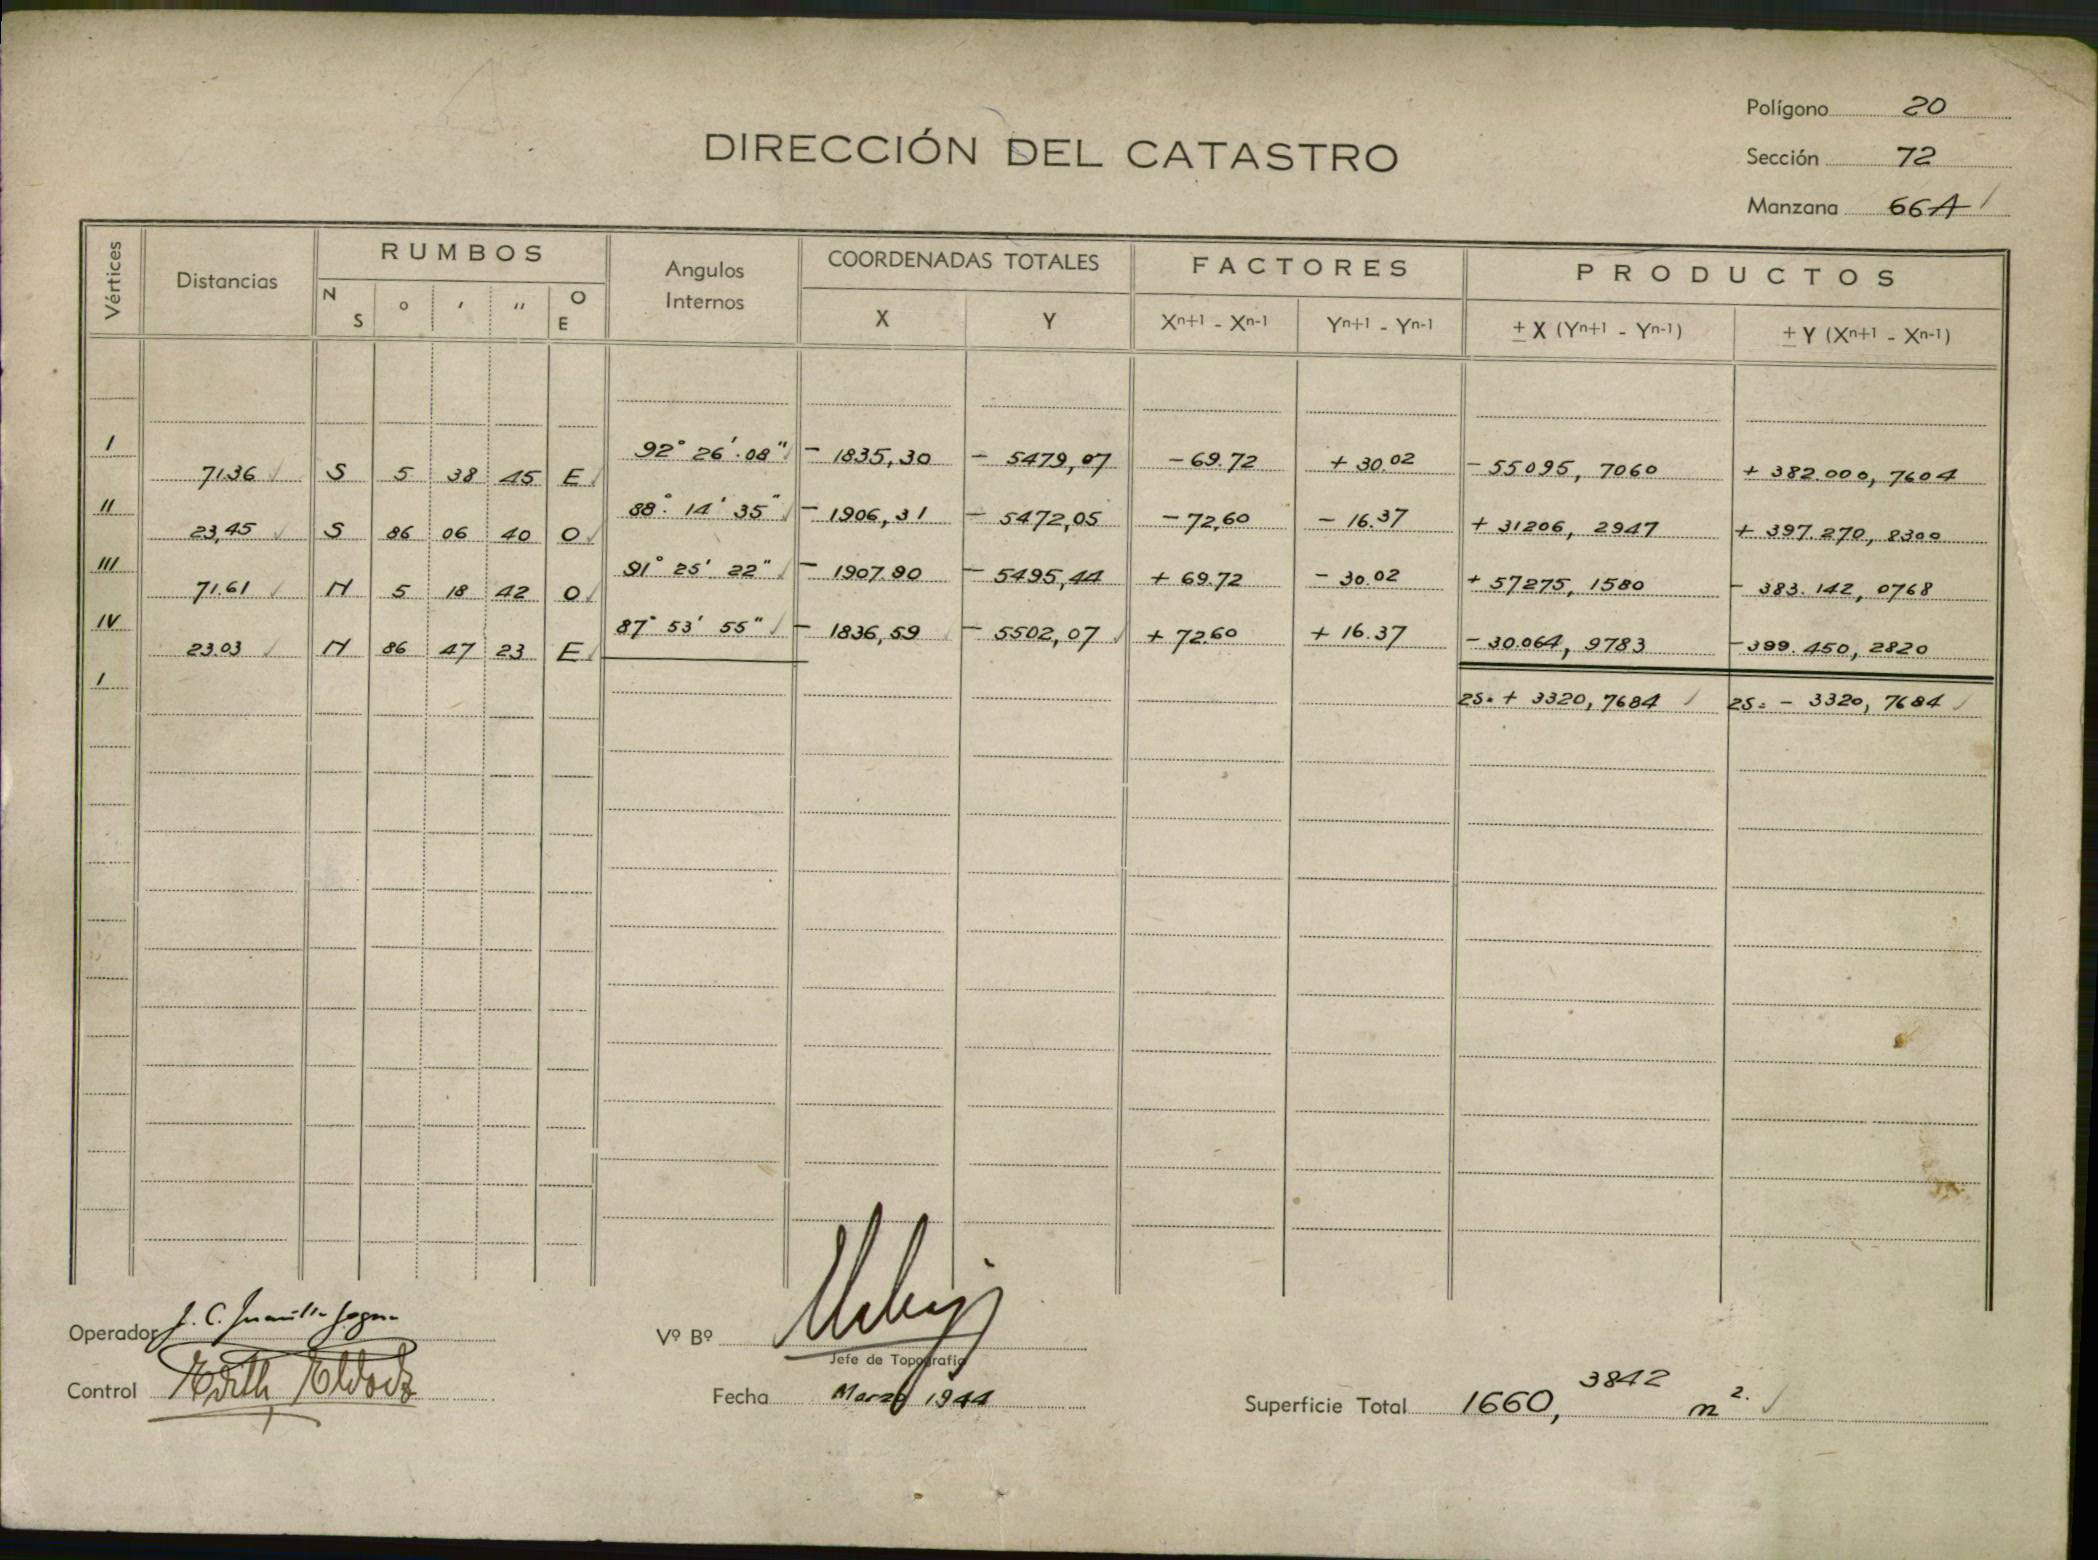 Polígono 20
DIRECCIÓN DEL CATASTRO
Sección 72
Manzana 66A
Vértices Distancias RUMBOS Angulos Internos COORDENADAS TOTALES FACTORES PRODUCTOS
N S ° ' " O E X Y Xn+1 - Xn-1 Yn+1 - Yn-1 ± X (Yn+1 - Yn-1) ± Y (Xn+1 - Xn-1)
I 92° 26' 08" - 1835,30 - 5479,07 - 69.72 + 30.02 - 55095, 7060 + 382.000, 7604
71.36 S 5 38 45 E
II 88° 14' 35" - 1906,31 - 5472,05 - 72,60 - 16.37 + 31206, 2947 + 397.270, 8300
23,45 S 86 06 40 O
III 91° 25' 22" - 1907.90 - 5495,44 + 69.72 - 30.02 + 57275, 1580 - 383.142, 0768
71.61 N 5 18 42 O
IV 87° 53' 55" - 1836,59 - 5502,07 + 72.60 + 16.37 - 30.064, 9783 - 399.450, 2820
23.03 N 86 47 23 E
I 2S= + 3320,7684 2S= - 3320, 7684
Operador J. C.
Vº Bº
Jefe de Topografía
Control Edith
Fecha Marzo 1944
Superficie Total 1660, 3842 m2.